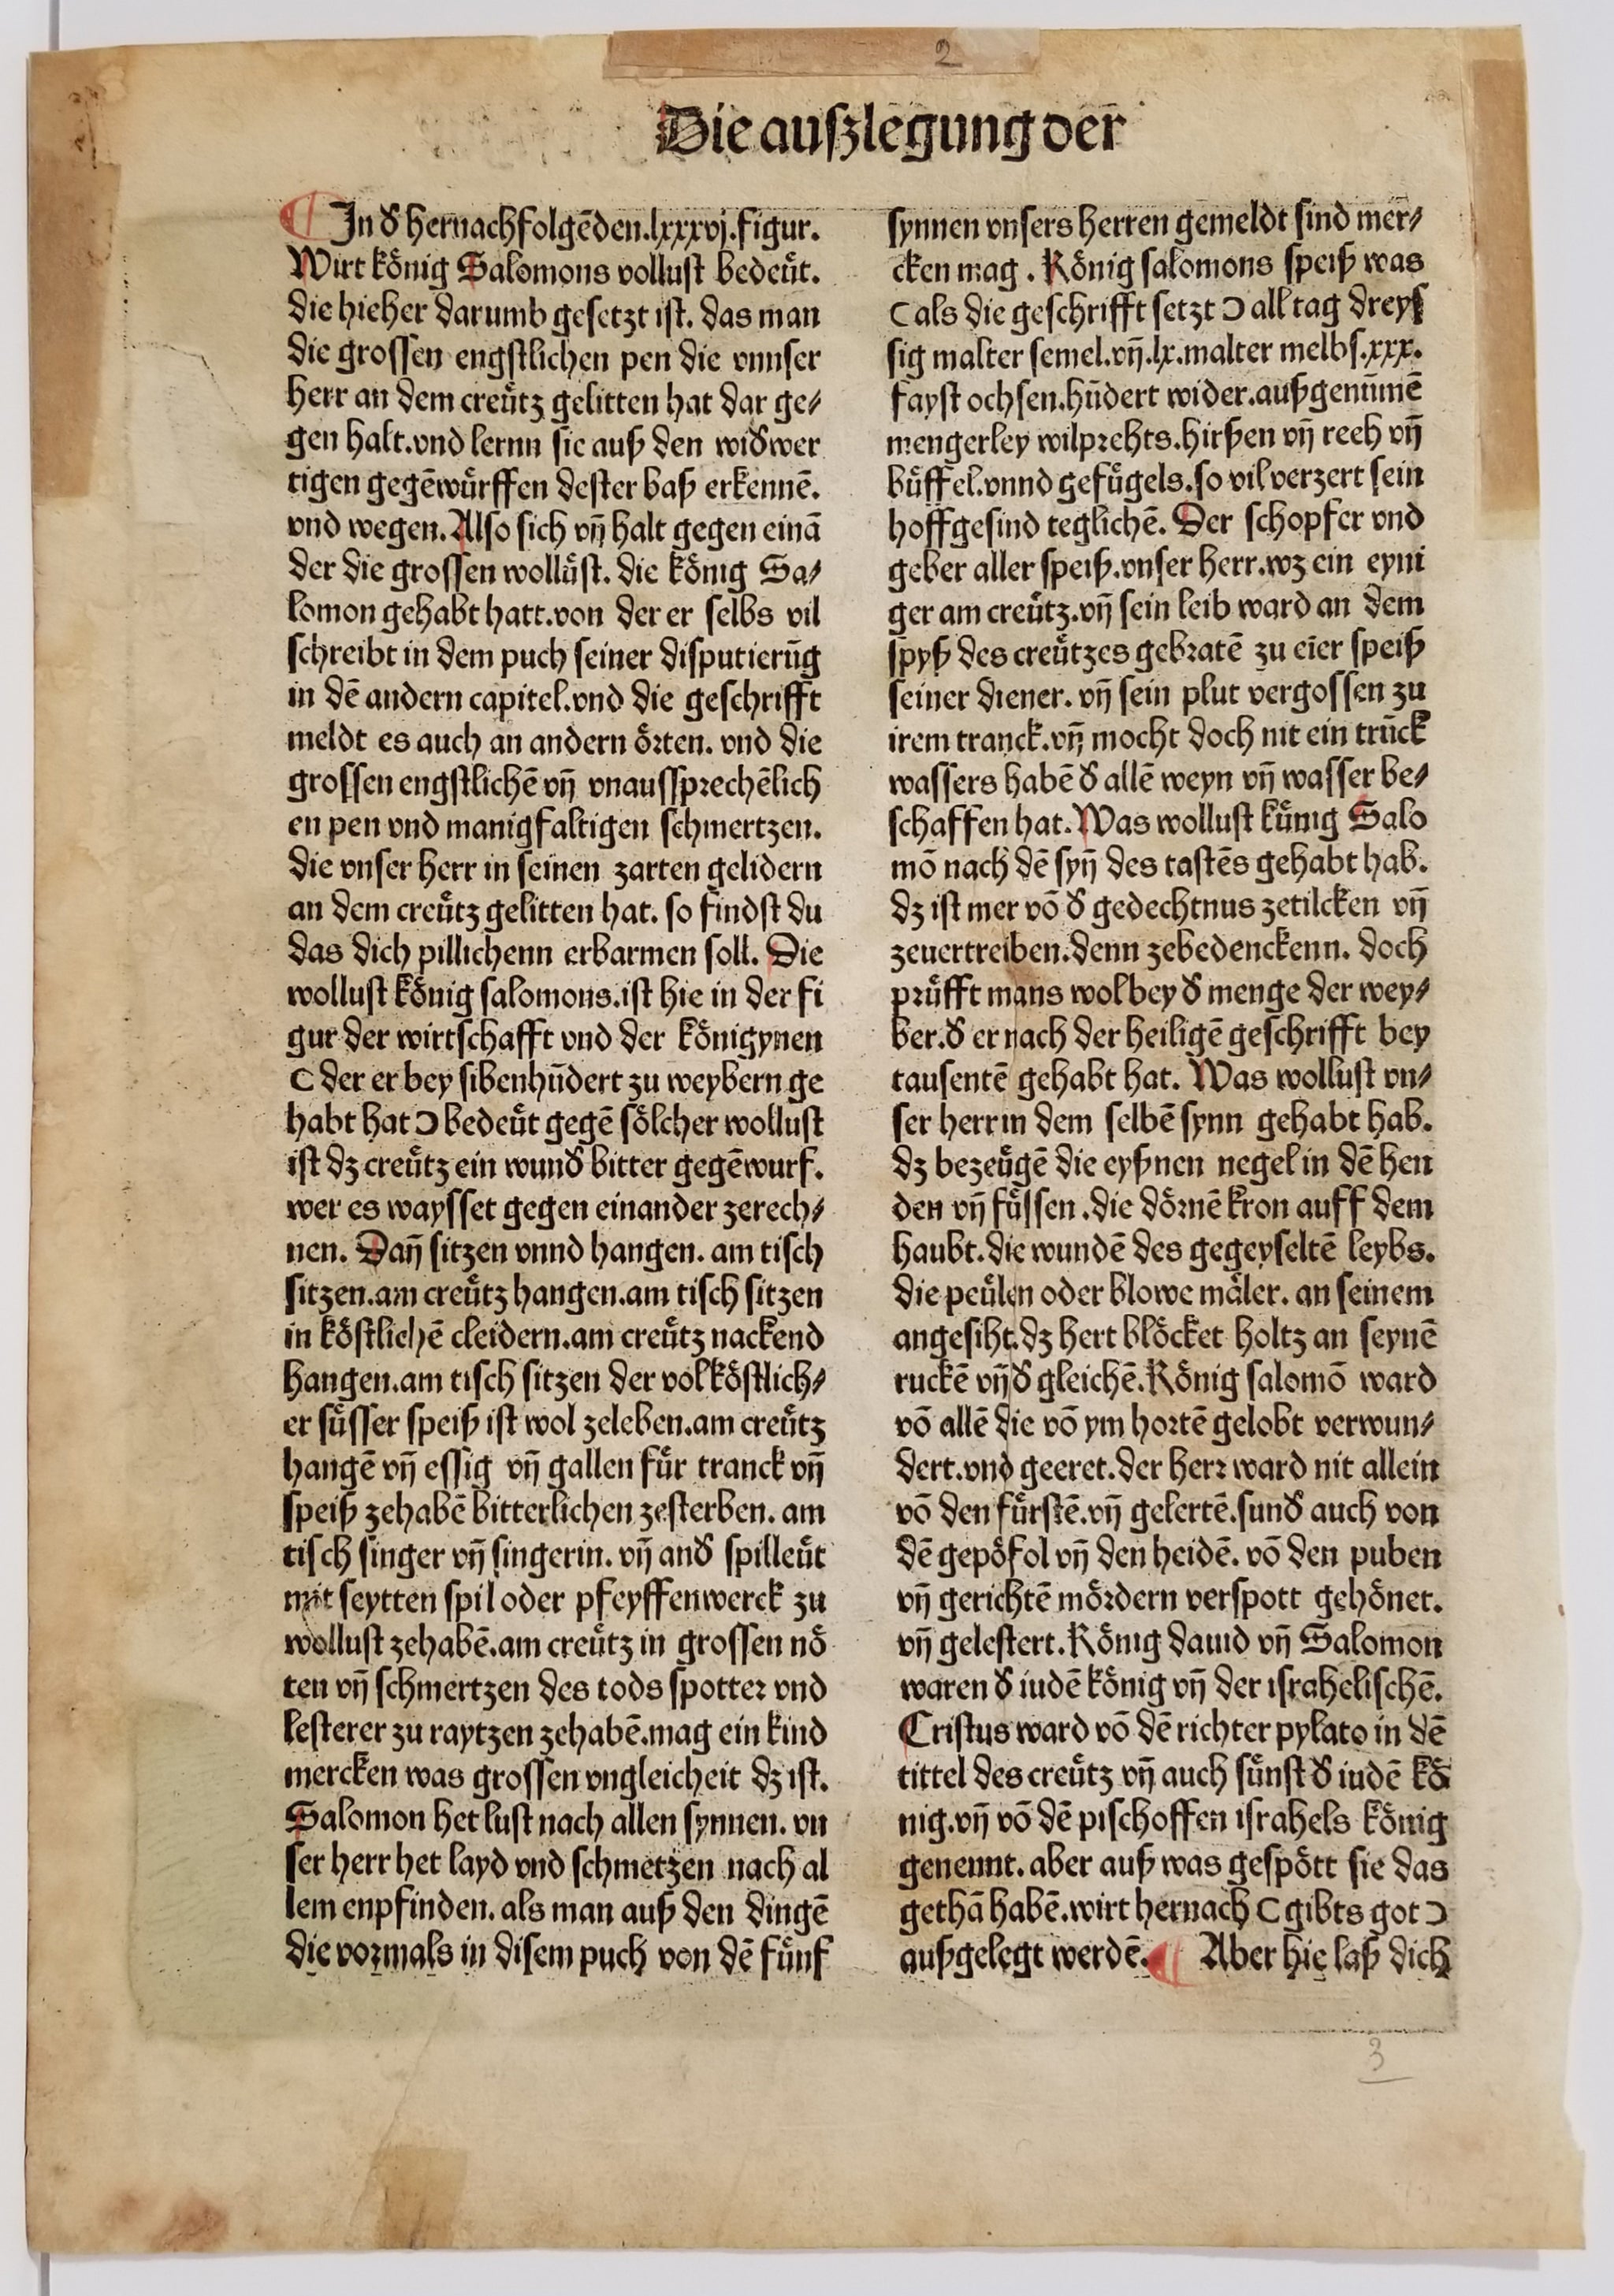 2
Die auſzlegung der
¶ In d̕ hernachfolgēden.lxxxvj.figur.
Wirt koͤnig Salomons vollust bedeuͤt.
die hieher darumb gesetzt ist. das man
die grossen engstlichen pen die vnnser
herr an dem creuͤtz gelitten hat dar ge⸗
gen halt.vnd lernn sie auß den wid̕wer
tigen gegēwuͤrffen dester baß erkennē.
vnd wegen. Also sich vn̄ halt gegen einā
der die grossen wolluͤst. die koͤnig Sa⸗
lomon gehabt hatt.von der er selbs vil
schreibt in dem puch seiner disputierūg
in dē andern capitel.vnd die geschrifft
meldt es auch an andern oͤrten. vnd die
grossen engstlichē vn̄ vnaussprechēlich
en pen vnd manigfaltigen schmertzen.
die vnser herr in seinen zarten gelidern
an dem creuͤtz gelitten hat. so findst du
das dich pillichenn erbarmen soll. Die
wollust koͤnig salomons.ist hie in der fi
gur der wirtschafft vnd der koͤnigynen
C der er bey sibenhūdert zu weybern ge
habt hat Ɔ bedeuͤt gegē soͤlcher wollust
ist dz creuͤtz ein wund̕ bitter gegēwurf.
wer es waysset gegen einander zerech⸗
nen. Dan̄ sitzen vnnd hangen. am tisch
sitzen.am creuͤtz hangen.am tisch sitzen
in koͤstlichē cleidern.am creuͤtz nackend
hangen.am tisch sitzen der vol koͤstlich⸗
er suͤsser speiß ist wol zeleben.am creuͤtz
hangē vn̄ essig vn̄ gallen fuͤr tranck vn̄
speiß zehabē bitterlichen zesterben. am
tisch singer vn̄ singerin. vn̄ and̕ spilleuͤt
mit seytten spil oder pfeyffenwerck zu
wollust zehabē.am creuͤtz in grossen noͤ
ten vn̄ schmertzen des tods spotter vnd
lesterer zu raytzen zehabē.mag ein kind
mercken was grossen vngleicheit dz ist.
Salomon het lust nach allen synnen. vn
ser herr het layd vnd schmetzen nach al
lem enpfinden. als man auß den dingē
die vormals in disem puch von dē fuͤnf
synnen vnsers herren gemeldt sind mer⸗
cken mag . Koͤnig salomons speiß was
C als die geschrifft setzt Ɔ all tag dreyſ
sig malter semel.vn̄.lx.malter melbs.xxx.
fayst ochsen.hūdert wider.außgenūmē
mengerley wilprehts.hirßen vn̄ reeh vn̄
buͤffel.vnnd gefuͤgels.so vil verzert sein
hoffgesind teglichē. Der schopfer vnd
geber aller speiß.vnser herr.wz ein eyni
ger am creuͤtz.vn̄ sein leib ward an dem
spyß des creuͤtzes gebratē zu eīer speiß
seiner diener. vn̄ sein plut vergossen zu
irem tranck.vn̄ mocht doch nit ein trūck
wassers habē d̕ allē weyn vn̄ wasser be⸗
schaffen hat. Was wollust kuͤnig Salo
mō nach dē syn̄ des tastēs gehabt hab.
dz ist mer vō d̕ gedechtnus zetilcken vn̄
zeuertreiben.denn zebedenckenn. doch
pruͤfft mans wol bey d̕ menge der wey⸗
ber.d̕ er nach der heiligē geschrifft bey
tausentē gehabt hat. Was wollust vn⸗
ser herr in dem selbē synn gehabt hab.
dz bezeuͤgē die eyßnen negel in dē hen
den vn̄ fuͤssen .die doͤrnē kron auff dem
haubt.die wundē des gegeyseltē leybs.
die peuͤlen oder blowe maͤler. an seinem
angesiht.dz hert bloͤcket holtz an seynē
ruckē vn̄ d̕ gleichē. Koͤnig salomō ward
vō allē die vō ym hortē gelobt verwun⸗
dert.vnd geeret.der herr ward nit allein
vō den fuͤrstē.vn̄ gelertē.sund̕ auch von
dē gepoͤfol vn̄ den heidē. vō den puben
vn̄ gerichtē moͤrdern verspott gehoͤnet.
vn̄ gelestert. Koͤnig dauid vn̄ Salomon
waren d̕ iudē koͤnig vn̄ der israhelischē.
Cristus ward vō dē richter pylato in dē
tittel des creuͤtz vn̄ auch suͤnst d̕ iudē koͤ
nig.vn̄ vō dē pischoffen israhels koͤnig
genennt. aber auß was gespoͤtt sie das
gethā habē.wirt hernach C gibts got Ɔ
außgelegt werdē. ¶ Aber hie laß dich
3